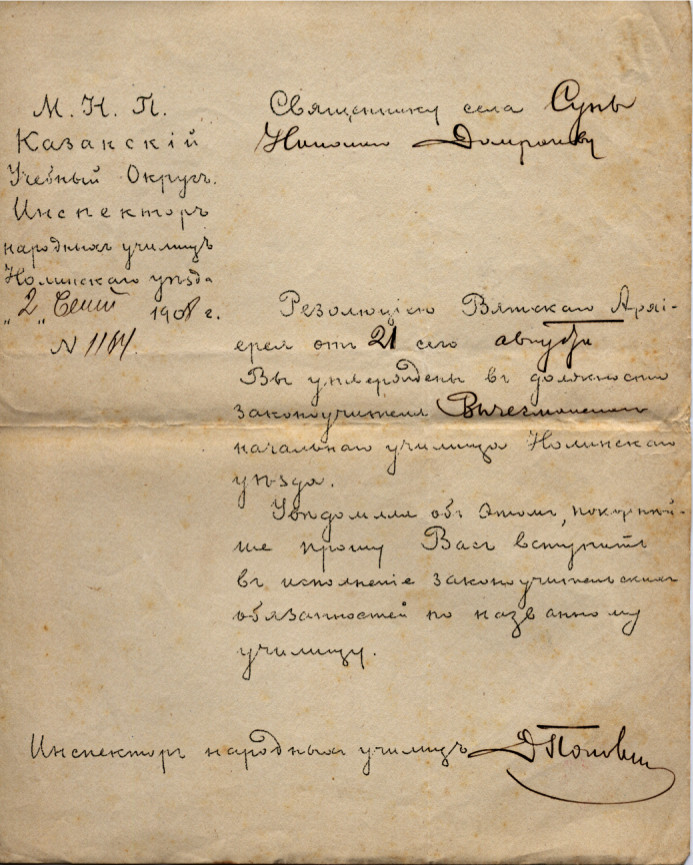 М. Н. П.
Казанскій
Учебный Округъ.
Инспекторъ
народныхъ училищъ
Нолинскаго уѣзда
„2„ Сент 1908 г.
N 1184.
Священнику села Суны
Домрачеву
Резолюціею Вятскаго Архі-
ерея отъ 21 сего августа
Вы утверждены въ должности
законоучителя
начальнаго училища Нолинскаго
уѣзда.
Увѣдомляя объ этомъ, покорнѣй-
ше прошу Васъ вступить
въ исполненіе законоучительскихъ
обязанностей по названному
училищу.
Инспекторъ народныхъ училищъ Д Поповъ